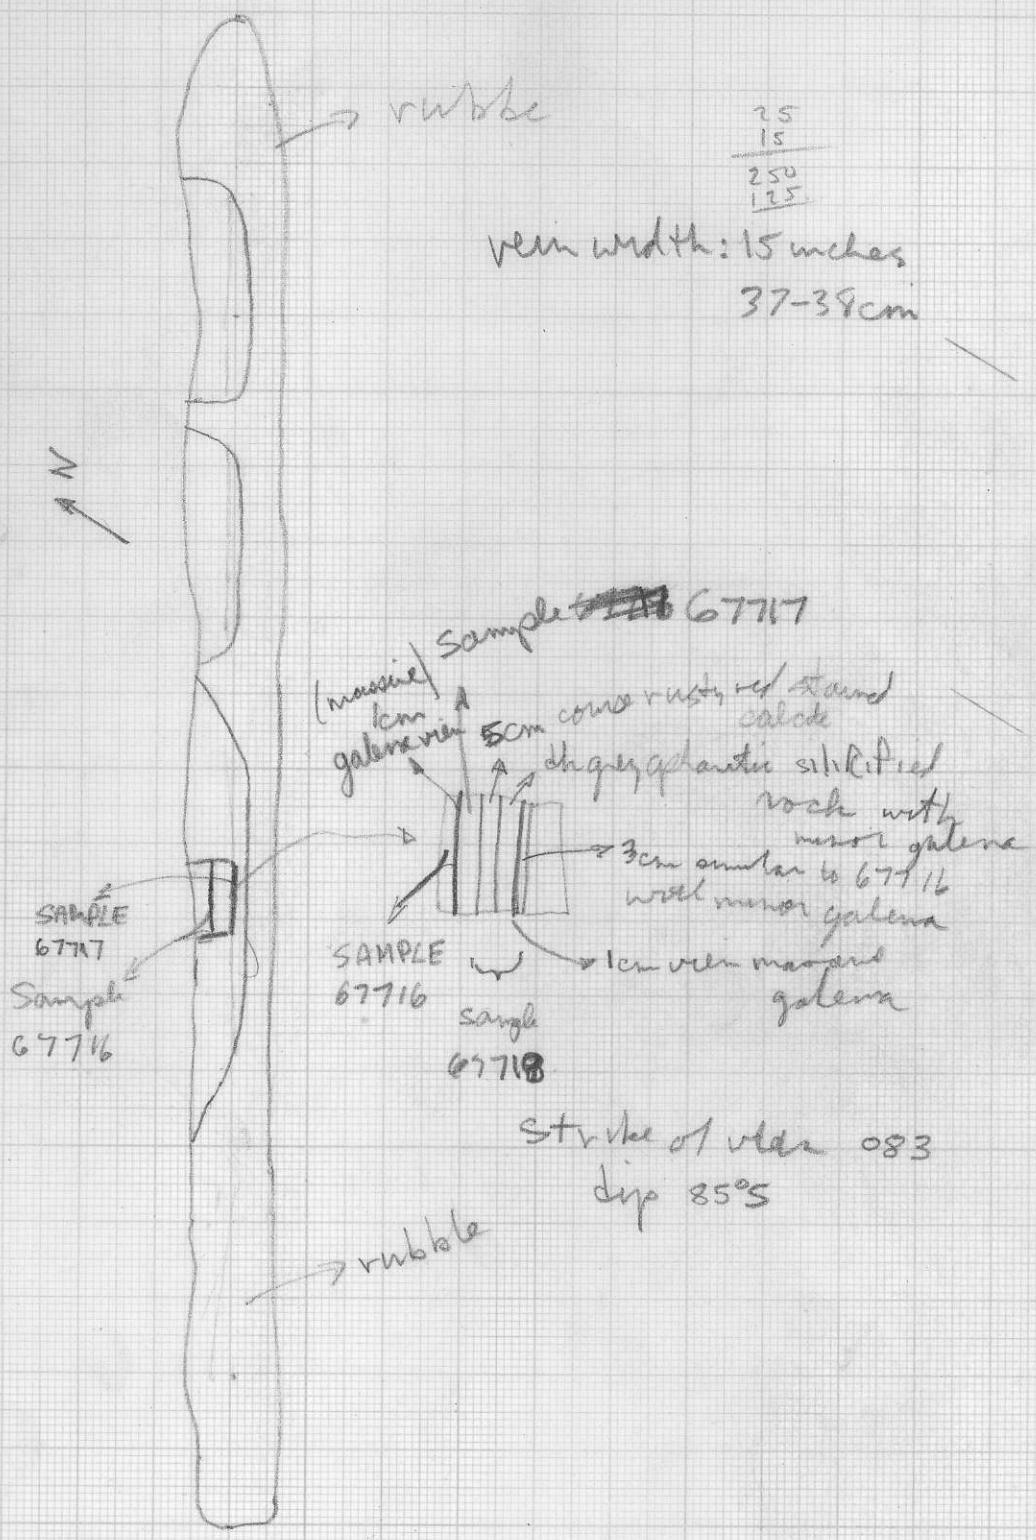 rubble
25
15
250
125
vein width: 15 inches
37-38cm
N
Sample 67717
(massive)
1cm
galena vein
5cm coarse rusty red stained
calcite
dk grey aphanitic silicified
rock with
minor galena
3cm similar to 67716
with minor galena
1cm vein massive
galena
SAMPLE
67717
Sample
67716
SAMPLE
67716
Sample
67718
Strike of vein 083
dip 85°S
rubble